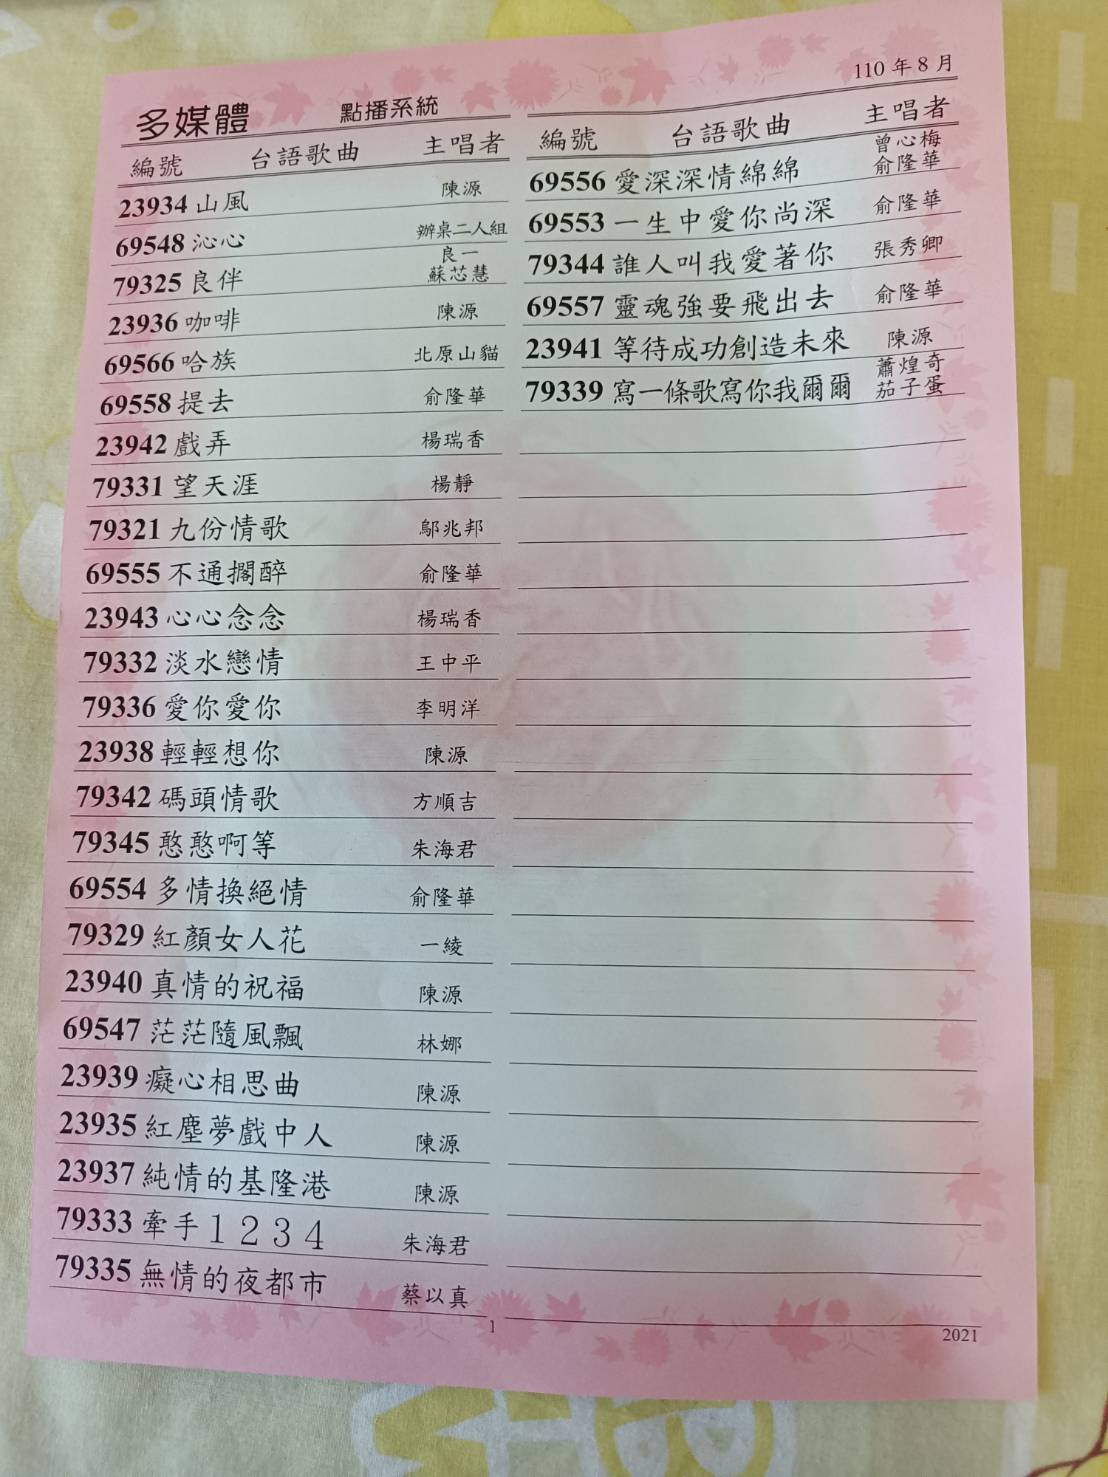 多媒體 點播系統
110 年 8 月
編號 台語歌曲 主唱者
23934 山風 陳源
69548 沁心 辦桌二人組
79325 良伴 良一 蘇芯慧
23936 咖啡 陳源
69566 哈族 北原山貓
69558 提去 俞隆華
23942 戲弄 楊瑞香
79331 望天涯 楊靜
79321 九份情歌 鄔兆邦
69555 不通擱醉 俞隆華
23943 心心念念 楊瑞香
79332 淡水戀情 王中平
79336 愛你愛你 李明洋
23938 輕輕想你 陳源
79342 碼頭情歌 方順吉
79345 憨憨啊等 朱海君
69554 多情換絕情 俞隆華
79329 紅顏女人花 一綾
23940 真情的祝福 陳源
69547 茫茫隨風飄 林娜
23939 癡心相思曲 陳源
23935 紅塵夢戲中人 陳源
23937 純情的基隆港 陳源
79333 牽手１２３４ 朱海君
79335 無情的夜都市 蔡以真
編號 台語歌曲 主唱者
69556 愛深深情綿綿 曾心梅 俞隆華
69553 一生中愛你尚深 俞隆華
79344 誰人叫我愛著你 張秀卿
69557 靈魂強要飛出去 俞隆華
23941 等待成功創造未來 陳源
79339 寫一條歌寫你我爾爾 蕭煌奇 茄子蛋
1
2021